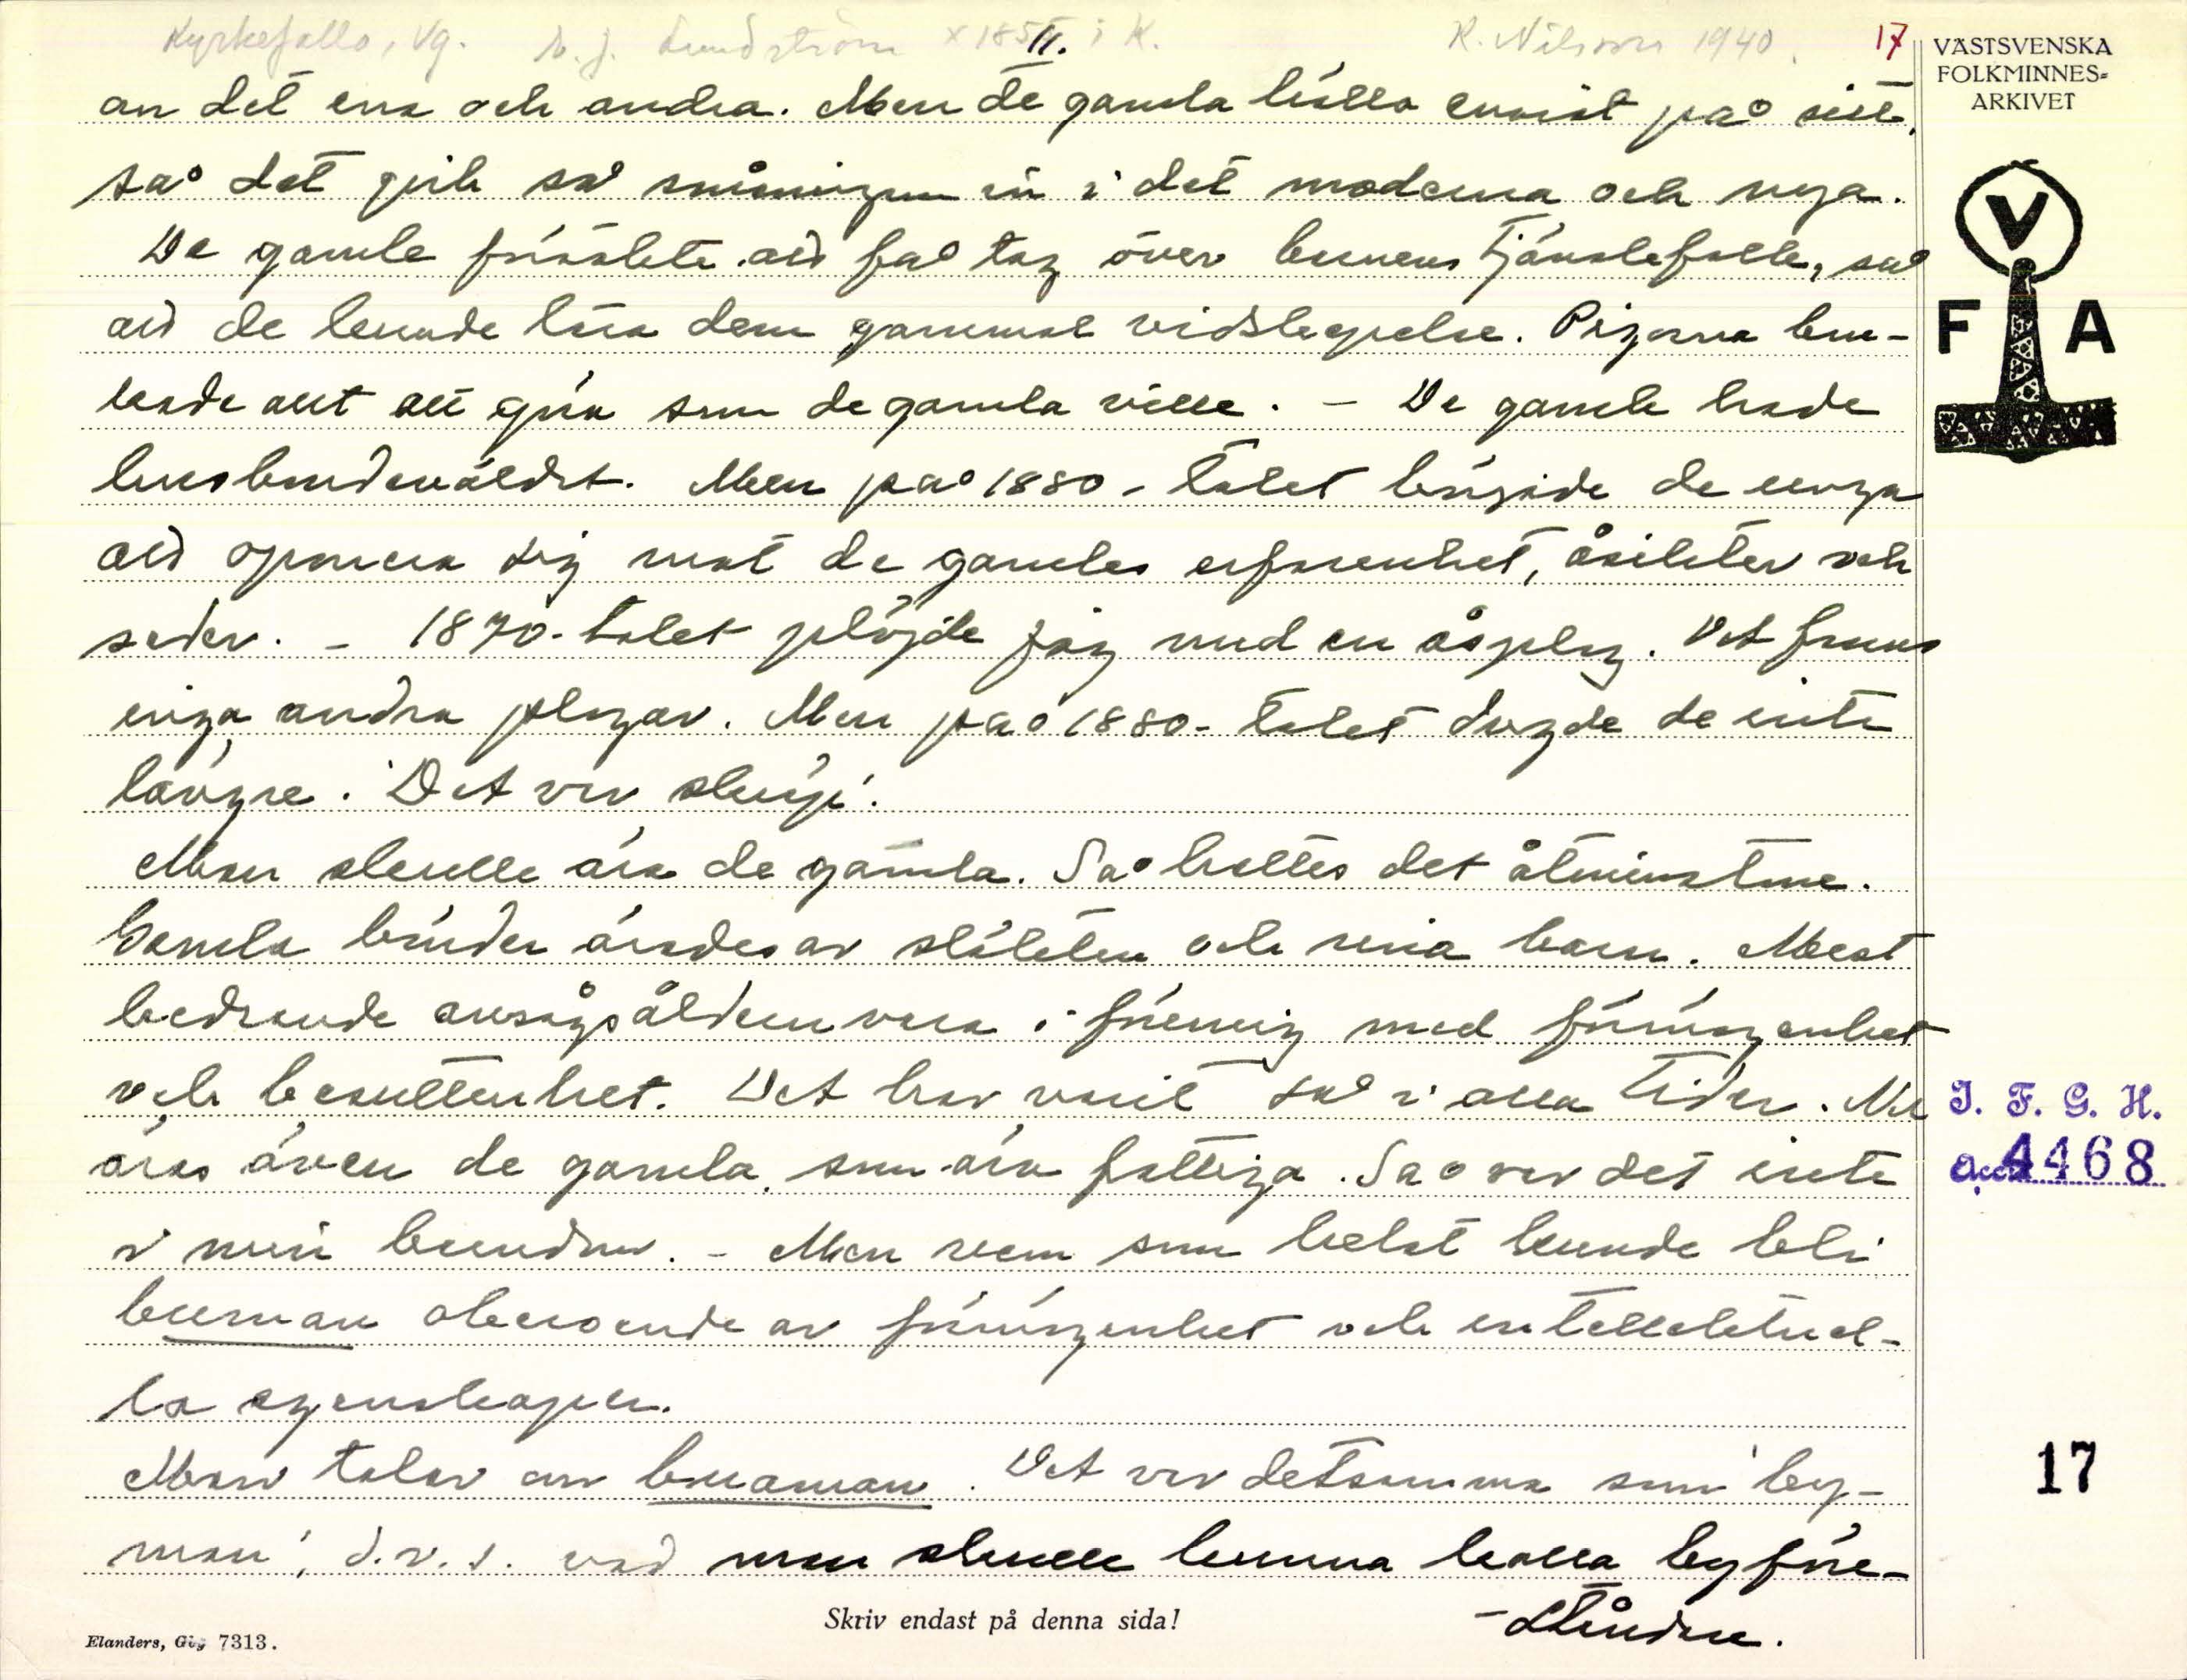 Kyrkefalla, Vg. J. Lundström x 185 i K. R. Nilsson 1940. 17
VÄSTSVENSKA
FOLKMINNES-
ARKIVET
V
F A
om det ena och andra. Men de gamla hålla envist på sitt,
så det gick så småningom in i det moderna och nya.
De gamle försökte att få tag över barnens tjänstefolk, så
att de kunde lära dem gammal vidskepelse. Pigorna lov-
ade allt att göra som de gamla ville. – De gamle hade
husbondeväldet. Men på 1880-talet började de unga
att opponera sig mot de gamles erfarenhet, åsikter och
seder. – 1870-talet plöjde jag med en åsplog. Det fanns
inga andra plogar. Men på 1880-talet dugde de inte
längre. Det var slurfi.
Man skulle ära de gamla. Så hettes det åtminstone.
Gamla bönder ärades av släkten och sina barn. Mest
hedrande ansågs åldern vara i förening med förmögenhet
och besuttenhet. Det har varit så i alla tider. Nu
äras även de gamla, som äro fattiga. Så var det inte
i min barndom. – Men vem som helst kunde bli
buman oberoende av förmögenhet och intellektuel-
la egenskaper.
Man talar om buaman. Det var detsamma som 'by-
man', d.v.s. vad man skulle kunna kalla byföre-
-ståndare.
I. F. G. H.
acc. 4468
17
Skriv endast på denna sida!
Elanders, Gbg 7313.